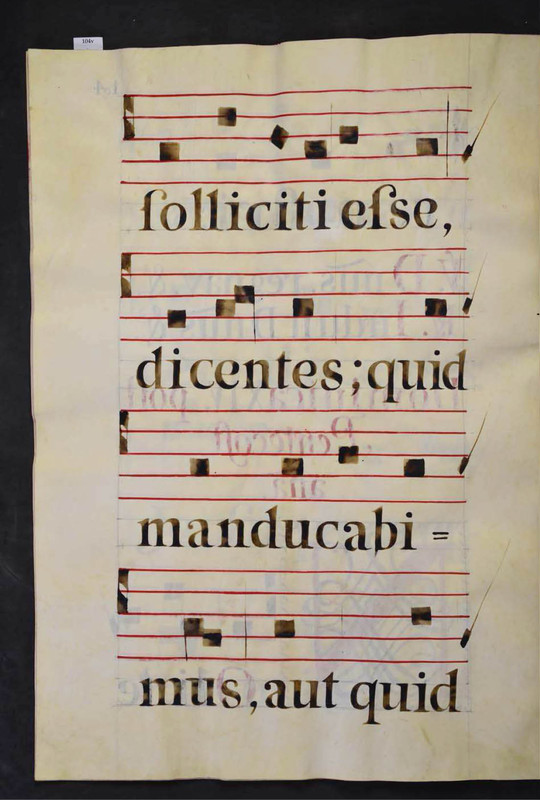 104v
ſolliciti eſse,
dicentes; quid
manducabi =
mus, aut quid